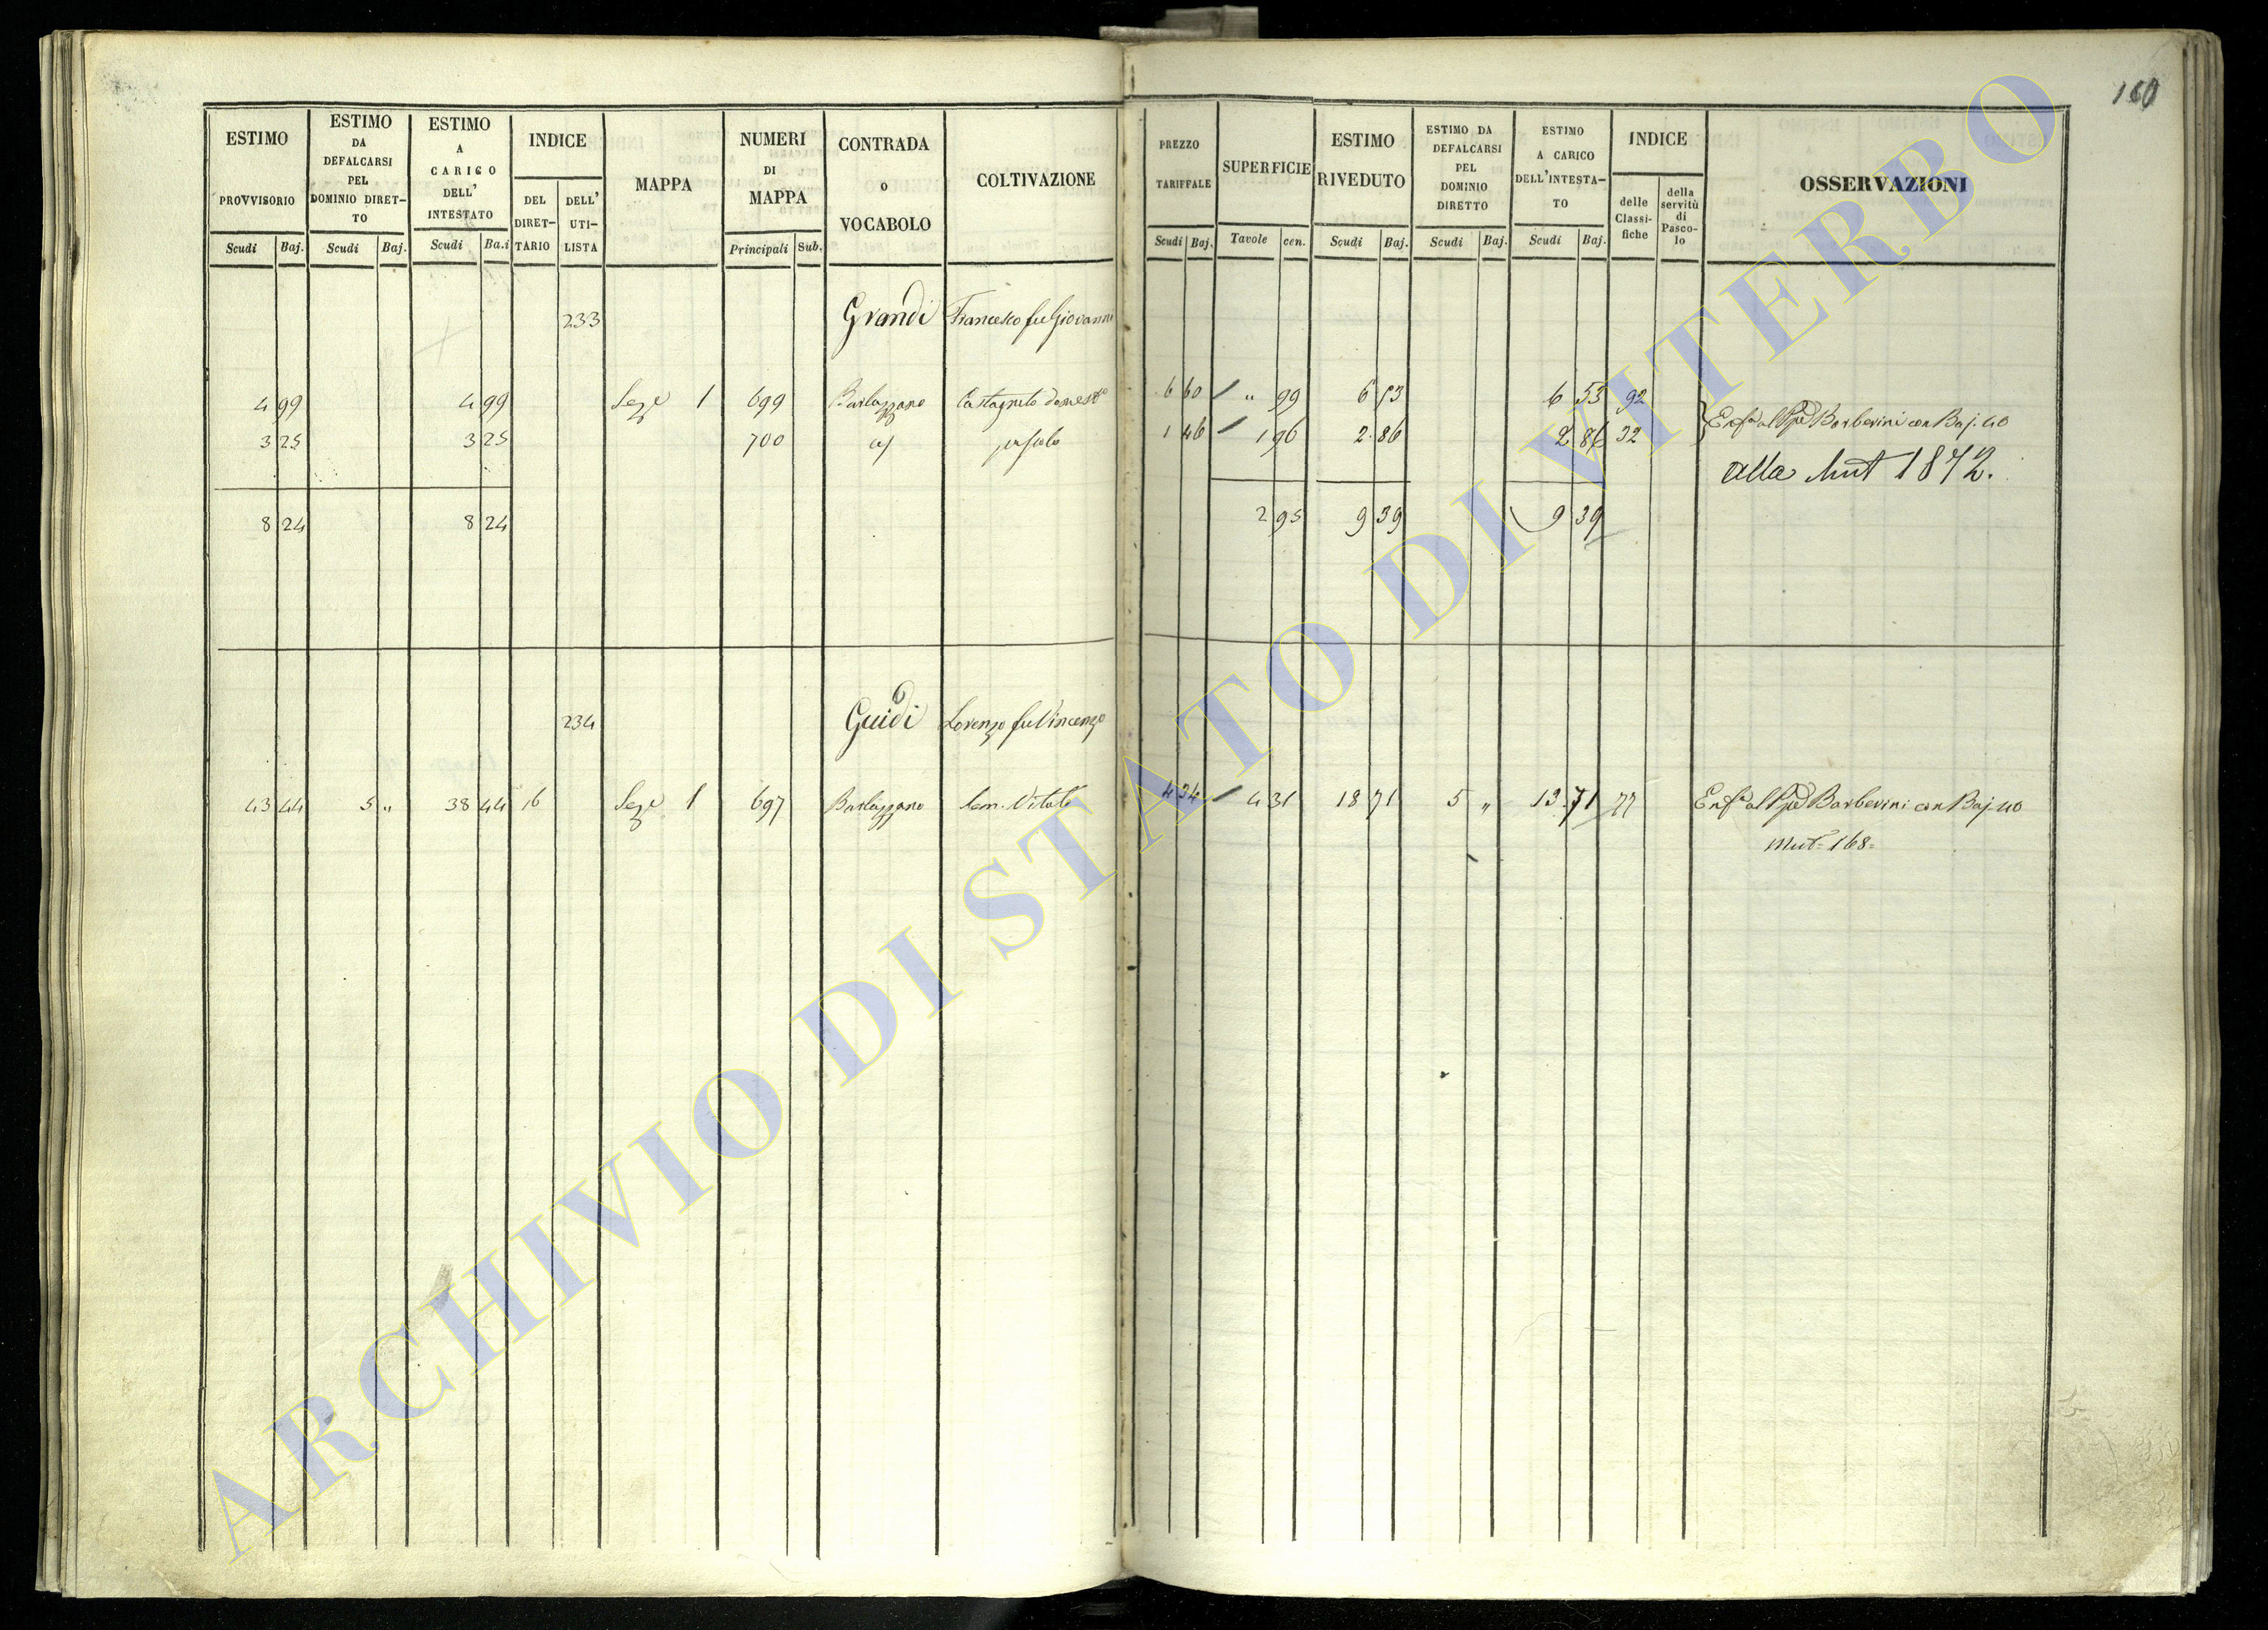 160
ESTIMO PROVVISORIO Scudi Baj.
ESTIMO DA DEFALCARSI PEL DOMINIO DIRETTO Scudi Baj.
ESTIMO A CARICO DELL' INTESTATO Scudi Ba.i
INDICE DEL DIRETTARIO DELL' UTILISTA
MAPPA
NUMERI DI MAPPA Principali Sub.
CONTRADA O VOCABOLO
COLTIVAZIONE
PREZZO TARIFFALE Scudi Baj.
SUPERFICIE Tavole cen.
ESTIMO RIVEDUTO Scudi Baj.
ESTIMO DA DEFALCARSI PEL DOMINIO DIRETTO Scudi Baj.
ESTIMO A CARICO DELL'INTESTATO Scudi Baj.
INDICE delle Classifiche della servitù di Pascolo
OSSERVAZIONI
233 Grandi Francesco fu Giovanni
4 99 4 99 Sez.e 1 699 Barlazzano Castagneto domest.o 6 60 " 99 6 53 6 53 92
3 25 3 25 700 1 46 1 96 2 86 2 86 32
Enf.a al Barberini con Baj. 40
alla Mut 1872.
8 24 8 24 2 95 9 39 9 39
234 Guidi Lorenzo fu Vincenzo
43 44 5 " 38 44 16 Sez.e 1 697 Barlazzano Sem. Vitato 4 34 4 31 18 71 5 " 13 71 77 Enf.a al Barberini con Baj. 40
Mut= 168=
ARCHIVIO DI STATO DI VITERBO